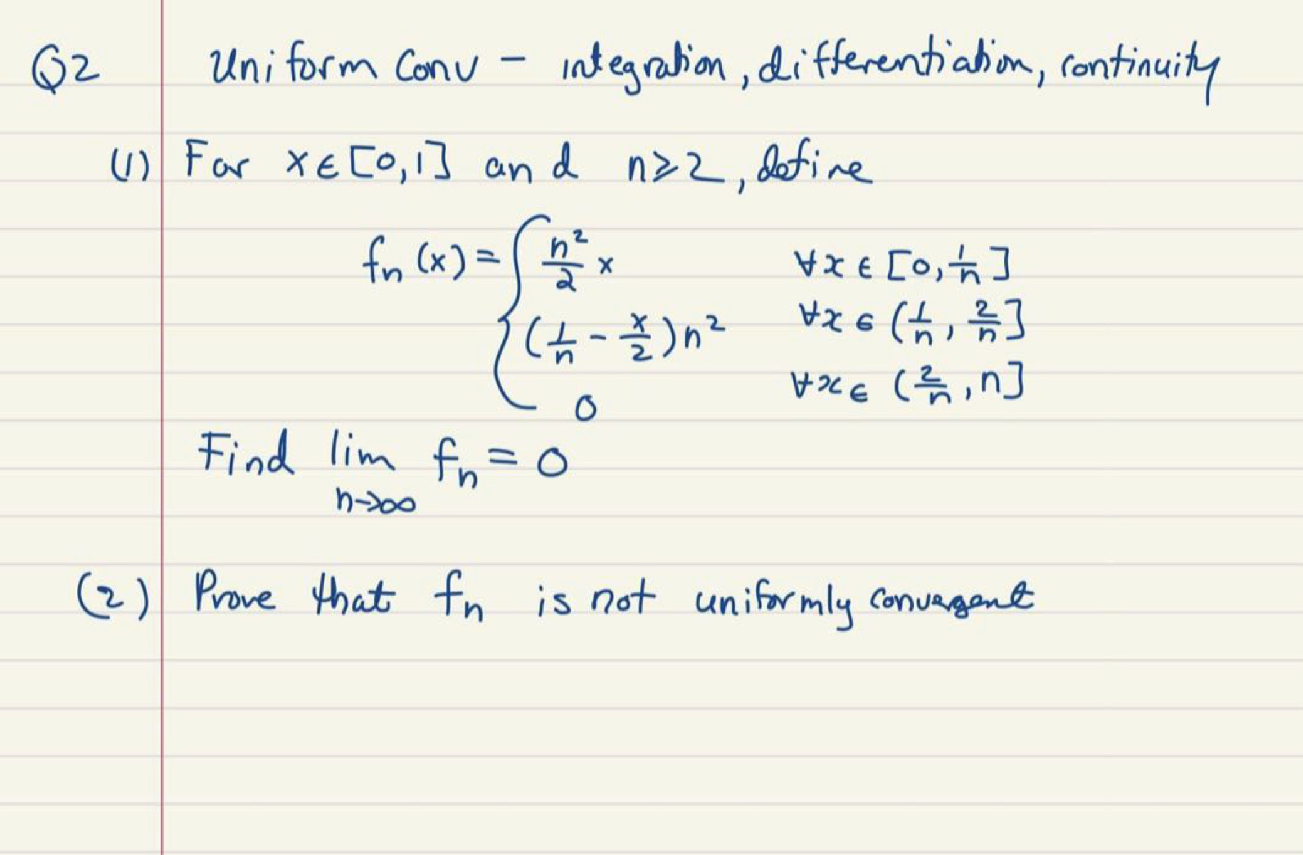 Q2 Uniform Conv - integration, differentiation, continuity
(1) For x ∈ [0,1] and n ≥ 2, define
fn (x) = { n²/2 x ∀x ∈ [0, 1/n]
(1/n - x/2) n² ∀x ∈ (1/n, 2/n]
0 ∀x ∈ (2/n, n]
Find lim n→∞ fn = 0
(2) Prove that fn is not uniformly convergent